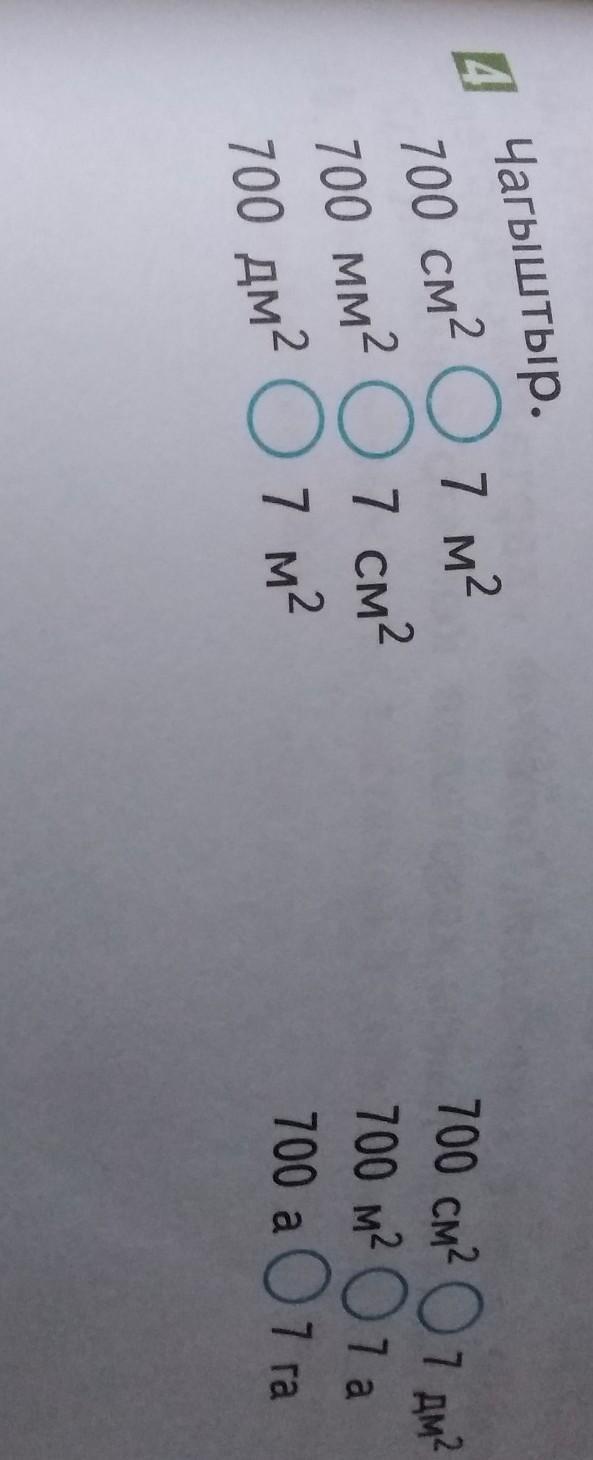 4 Чагыштыр.
700 см² ○ 7 м²
700 мм² ○ 7 см²
700 дм² ○ 7 м²
700 см² ○ 7 дм²
700 м² ○ 7 а
700 а ○ 7 га